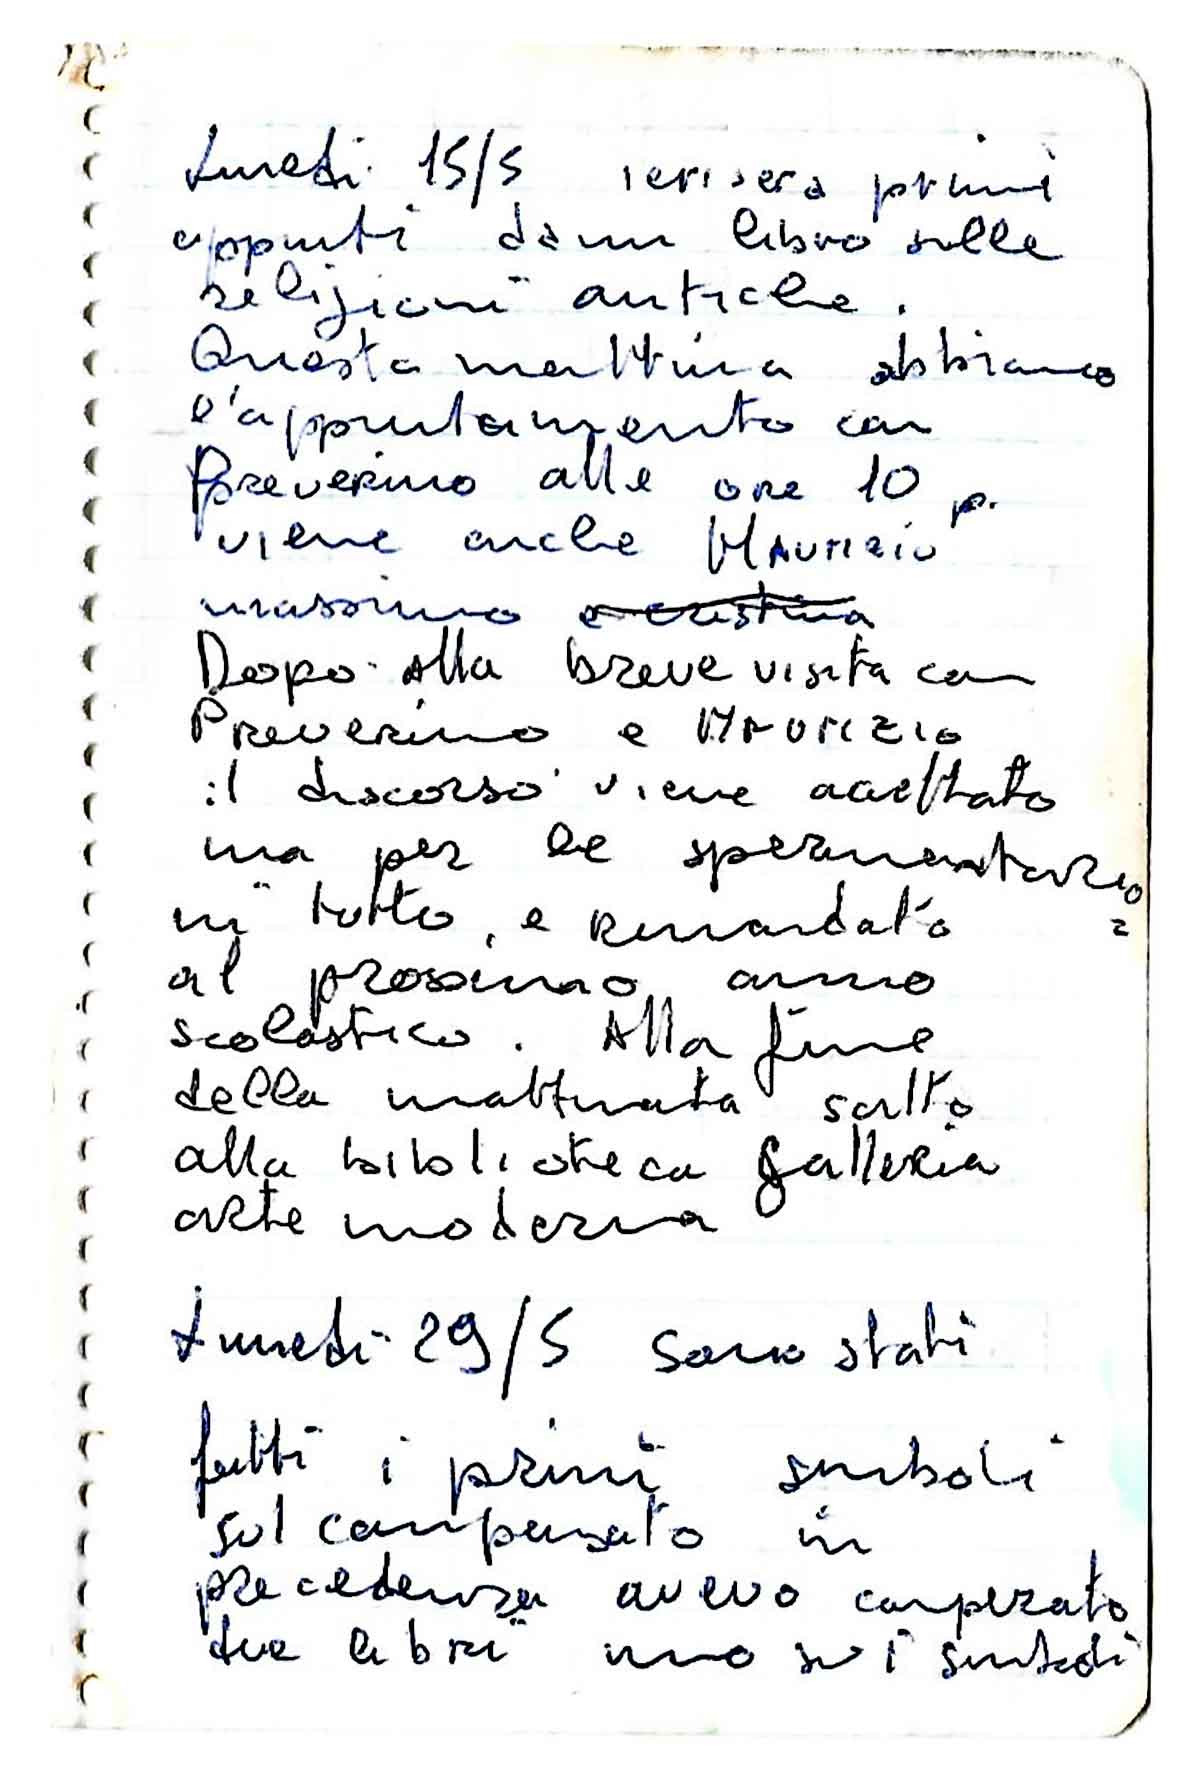 Lunedì 15/5 ieri sera primi
appunti da un libro sulle
religioni antiche.
Questa mattina abbiamo
l'appuntamento con
Preverino alle ore 10 p.
viene anche MAURIZIO
massimo e cristina
Dopo alla breve visita con
Preverino e MAURIZIO
il discorso viene accettato
ma per le sperimentazio=
ni tutto, e rimandato
al prossimo anno
scolastico. Alla fine
della mattinata salto
alla biblioteca galleria
arte moderna
Lunedì 29/5 sono stati
fatti i primi simboli
sul compensato in
precedenza avevo comperato
due libri uno sui simboli